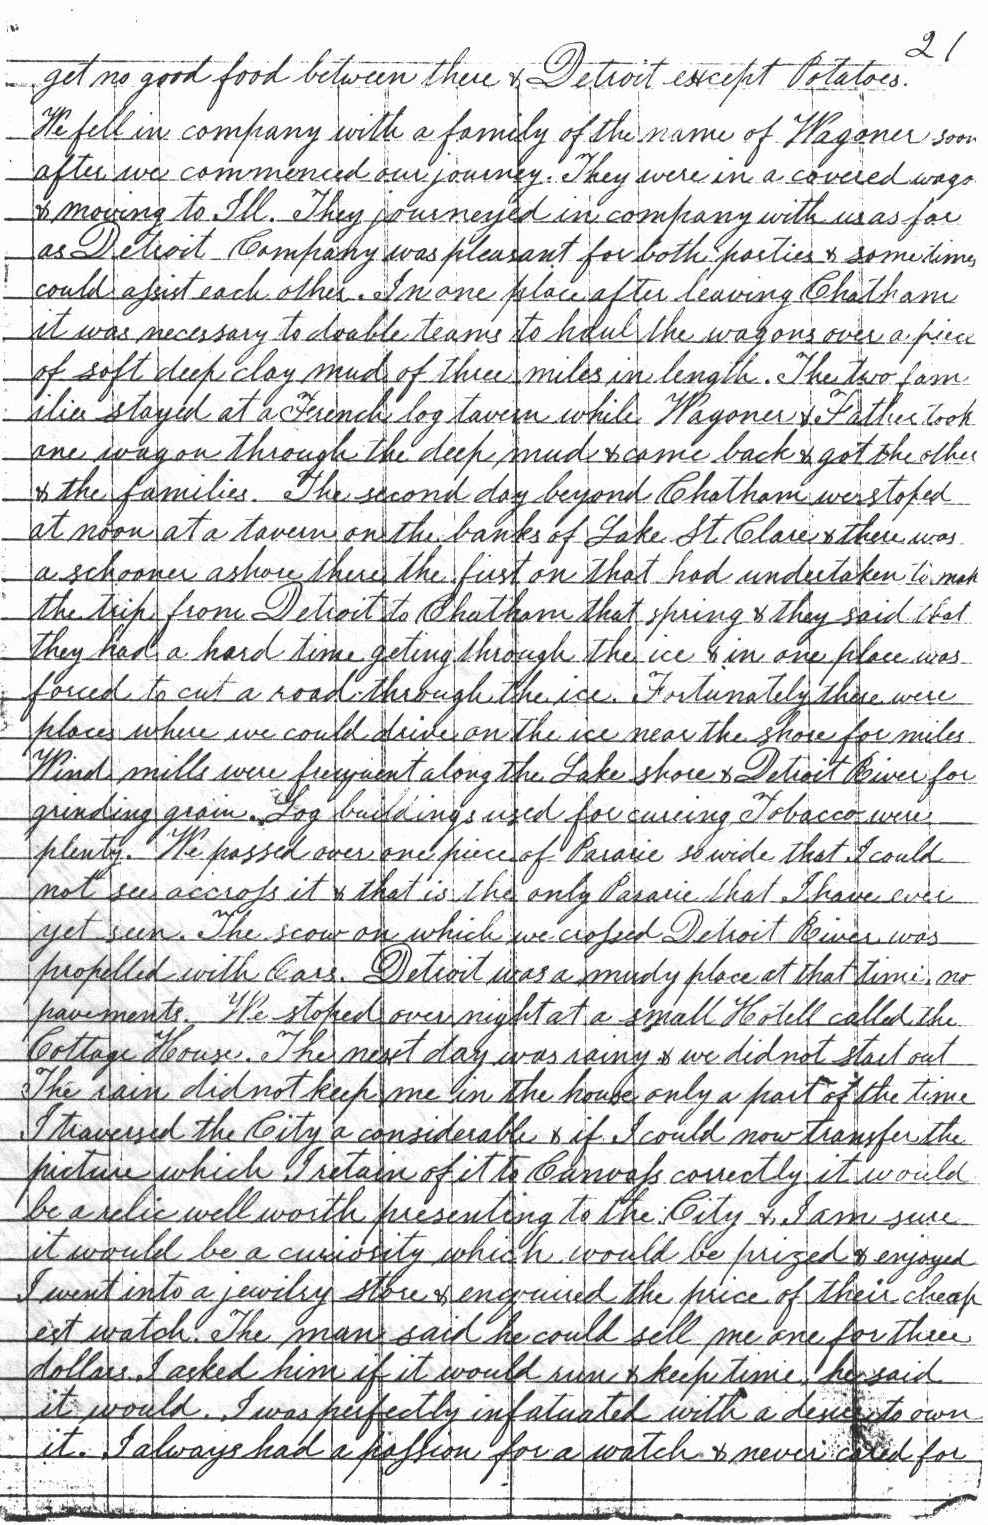 21
get no good food between there & Detroit except Potatoes.
We fell in company with a family of the name of Wagoner soon
after we commenced our journey. They were in a covered wago
& moving to Ill. They journeyed in company with us as far
as Detroit Company was pleasant for both parties & sometimes
could assist each other. In one place after leaving Chatham
it was necessary to double teams to haul the wagons over a piece
of soft deep clay mud of three miles in length. The two fam
ilies stayed at a French log tavern while Wagoner & Father took
one wagon through the deep mud & came back & got the other
& the families. The second day beyond Chatham we stoped
at noon at a tavern on the banks of Lake St Clare & there was
a schooner ashore there the first on that had undertaken to mak
the trip from Detroit to Chatham that spring & they said that
they had a hard time geting through the ice & in one place was
forced to cut a road through the ice. Fortunately there were
places where we could drive on the ice near the shore for miles
Wind mills were frequent along the Lake shore & Detroit River for
grinding grain. Log buildings used for cureing Tobacco were
plenty. We passed over one piece of Pararie so wide that I could
not see accross it & that is the only Pararie that I have ever
yet seen. The scow on which we crossed Detroit River was
propelled with Oars. Detroit was a mudy place at that time. no
pavements. We stoped over night at a small Hotell called the
Cottage House. The next day was rainy & we did not start out
The rain did not keep me in the house only a part of the time
I traversed the City a considerable & if I could now transfer the
picture which I retain of it to Canvass correctly it would
be a relic well worth presenting to the City & I am sure
it would be a curiosity which would be prized & enjoyed
I went into a jewilry store & enquired the price of their cheap
est watch. The man said he could sell me one for three
dollars. I asked him if it would run & keep time. he said
it would. I was perfectly infatuated with a desire to own
it. I always had a passion for a watch & never cared for